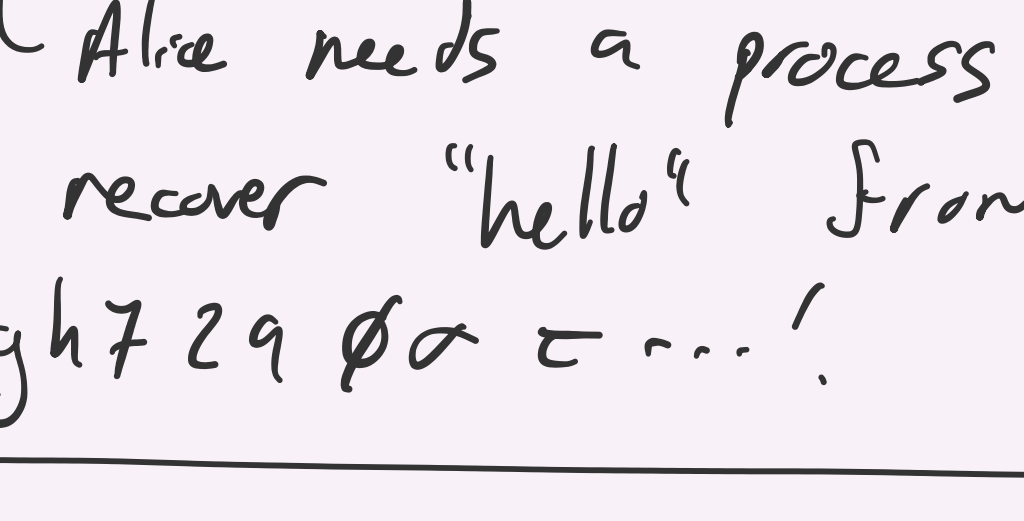 Alice needs a process
recover "hello" from
gh72a